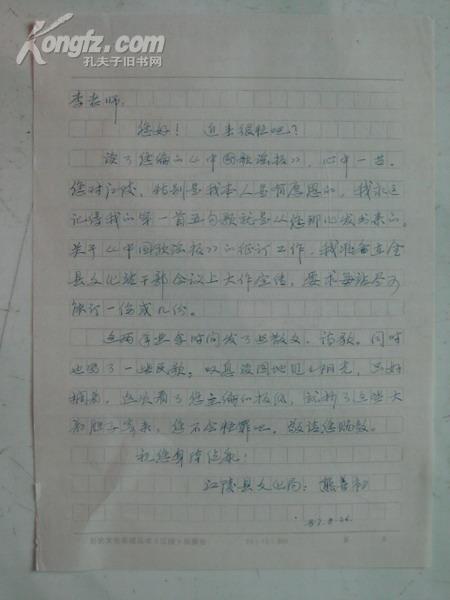 Kongfz.com
孔夫子旧书网
李老师:
您好! 近来很忙吧?
读了您编的《中国歌谣报》, 心中一喜。
您对江陵, 特别是我本人是有厚恩的, 我永远
记得我的第一首五句歌就是从您那儿发出来的。
关于《中国歌谣报》的征订工作, 我准备在全
县文化站干部会议上大作宣传, 要求每站尽可
能订一份或几份。
这两年业余时间发了些散文、诗歌。同时
也写了一些民歌。叹息没园地见阳光, 只好
搁着, 这次看了您主编的报纸, 就抄了这些大
着胆子寄来, 您不会怪罪吧, 敬请您赐教。
祝您身体健康!
江陵县文化局: